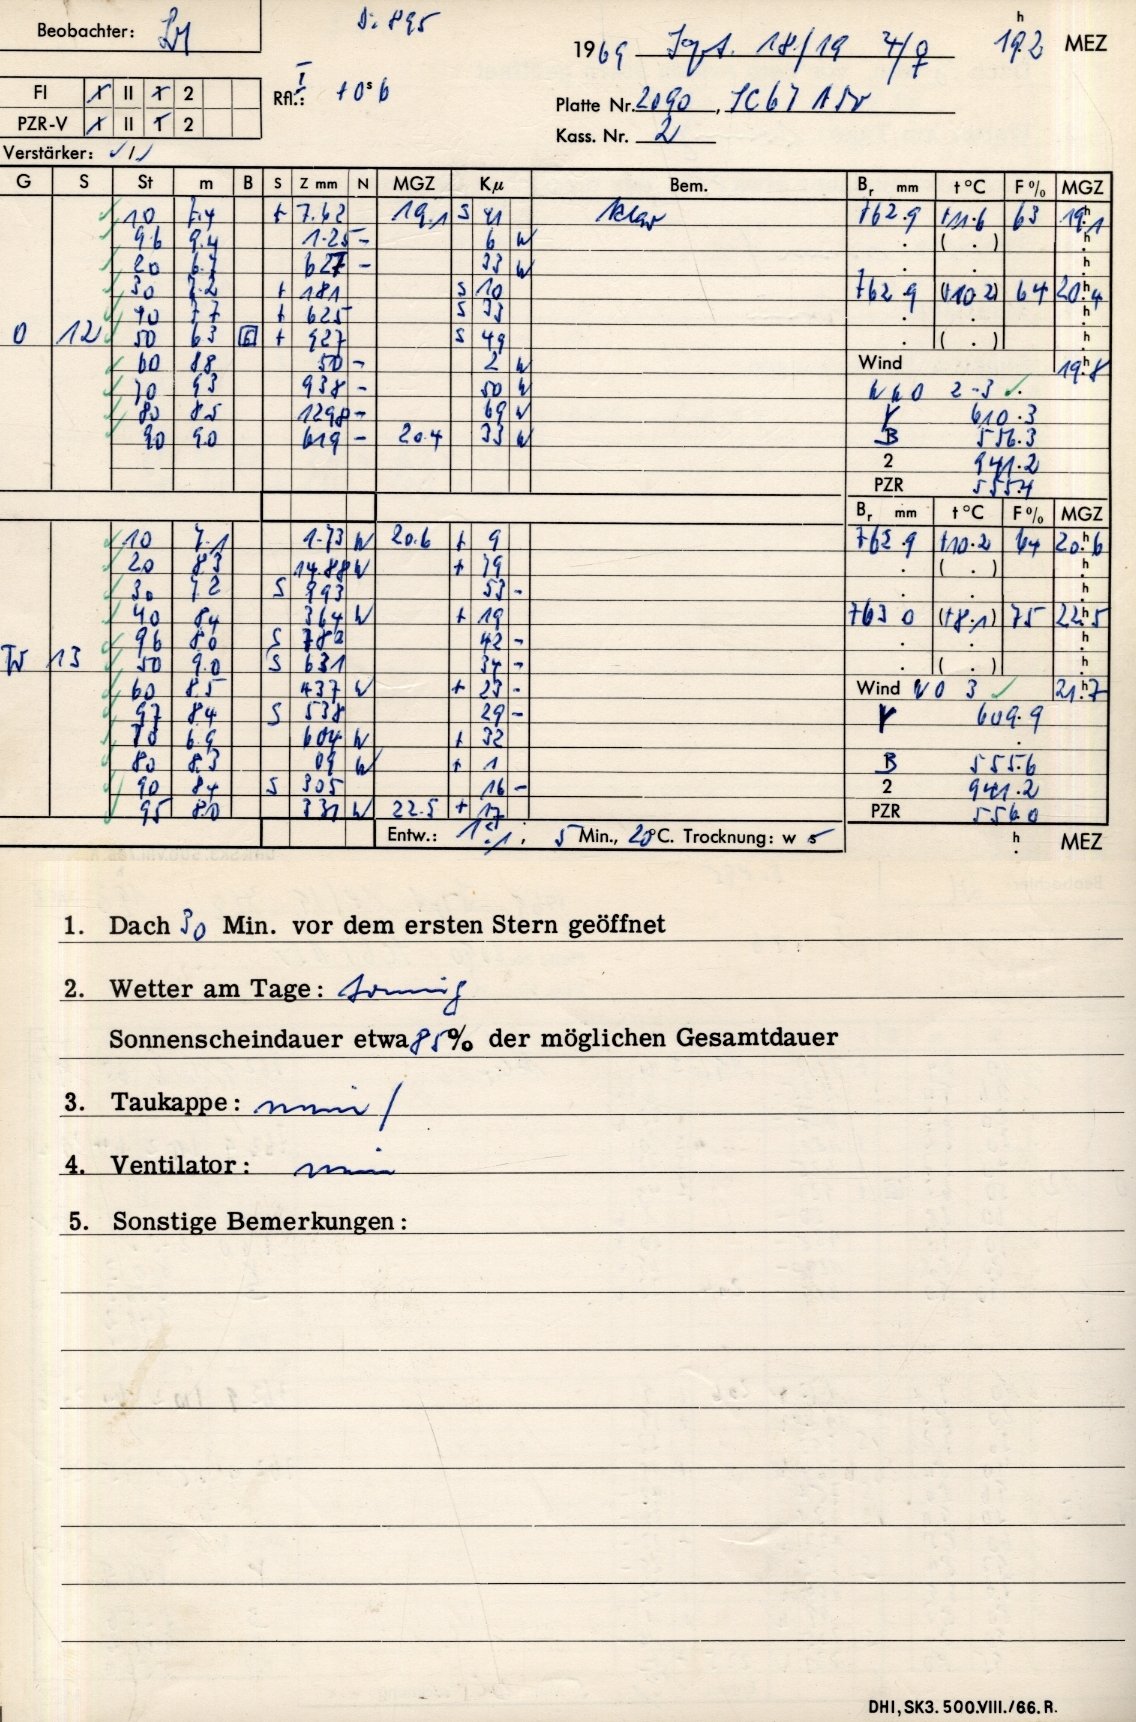 Beobachter:
D: 895
1969 Sept. 18./19 ♃/♀ 19h.2 MEZ
FI I II 1 2
PZR-V I II 1 2
Rfl.: I +0s6
Platte Nr. 2090,
Kass. Nr. 2
Verstärker: √ / √
G S St m B S Z mm N MGZ Kμ Bem. Br mm t°C F% MGZ
10 7.4 + 7.62 19.1 S 41 klar 762.9 +11.6 63 19h.1
96 9.4 1.25 - 6 W . ( . ) h
20 6.7 627 - 33 W . . h
30 7.2 + 181 S 10 762 9 (+10.2) 64 20h.4
40 77 + 625 S 33 . . h
0 12 50 63 6 + 927 S 49 . ( . ) h
60 88 50 - 2 W Wind 19h.8
70 93 938 - 50 W WNO 2-3 √
80 85 1298 - 69 W γ 610.3
90 90 619 - 20.4 33 W B 556.3
2 941.2
PZR 555.4
Br mm t°C F% MGZ
10 7.1 1.73 W 20.6 + 9 762.9 +10.2 64 20h.6
20 83 14.88 W + 79 . ( . ) h
30 72 S 993 53 - . . h
40 84 364 W + 19 763 0 (+8.1) 75 22h.5
96 80 S 782 42 - . . h
W 13 50 9.0 S 631 34 - . ( . ) h
60 85 437 W + 23 - Wind NO 3 √ 21h.7
97 84 S 538 29 - γ 609.9
70 6.9 604 W + 32
80 8.3 09 W + 1 B 555.6
90 84 S 305 16 - 2 941.2
95 80 331 W 22.5 + 17 PZR 556.0
Entw.: 1:1; 5 Min., 20°C. Trocknung: w 5 h MEZ
1. Dach 30 Min. vor dem ersten Stern geöffnet
2. Wetter am Tage: sonnig
Sonnenscheindauer etwa 85% der möglichen Gesamtdauer
3. Taukappe: nein /
4. Ventilator: nein
5. Sonstige Bemerkungen:
DHI, SK3. 500.VIII./66. R.